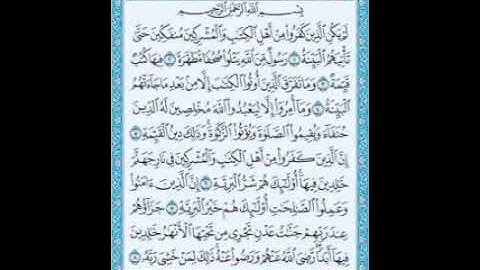 بِسْمِ اللَّهِ الرَّحْمَٰنِ الرَّحِيمِ
لَمْ يَكُنِ الَّذِينَ كَفَرُوا مِنْ أَهْلِ الْكِتَابِ وَالْمُشْرِكِينَ مُنفَكِّينَ حَتَّىٰ
تَأْتِيَهُمُ الْبَيِّنَةُ ۝١ رَسُولٌ مِّنَ اللَّهِ يَتْلُوا صُحُفًا مُّطَهَّرَةً ۝٢ فِيهَا كُتُبٌ
قَيِّمَةٌ ۝٣ وَمَا تَفَرَّقَ الَّذِينَ أُوتُوا الْكِتَابَ إِلَّا مِن بَعْدِ مَا جَاءَتْهُمُ
الْبَيِّنَةُ ۝٤ وَمَا أُمِرُوا إِلَّا لِيَعْبُدُوا اللَّهَ مُخْلِصِينَ لَهُ الدِّينَ
حُنَفَاءَ وَيُقِيمُوا الصَّلَوٰةَ وَيُؤْتُوا الزَّكَوٰةَ ۚ وَذَٰلِكَ دِينُ الْقَيِّمَةِ ۝٥
إِنَّ الَّذِينَ كَفَرُوا مِنْ أَهْلِ الْكِتَابِ وَالْمُشْرِكِينَ فِي نَارِ جَهَنَّمَ
خَالِدِينَ فِيهَا ۚ أُولَٰئِكَ هُمْ شَرُّ الْبَرِيَّةِ ۝٦ إِنَّ الَّذِينَ ءَامَنُوا
وَعَمِلُوا الصَّالِحَاتِ أُولَٰئِكَ هُمْ خَيْرُ الْبَرِيَّةِ ۝٧ جَزَاؤُهُمْ
عِندَ رَبِّهِمْ جَنَّاتُ عَدْنٍ تَجْرِي مِن تَحْتِهَا الْأَنْهَارُ خَالِدِينَ
فِيهَا أَبَدًا ۖ رَّضِيَ اللَّهُ عَنْهُمْ وَرَضُوا عَنْهُ ۚ ذَٰلِكَ لِمَنْ خَشِيَ رَبَّهُ ۝٨